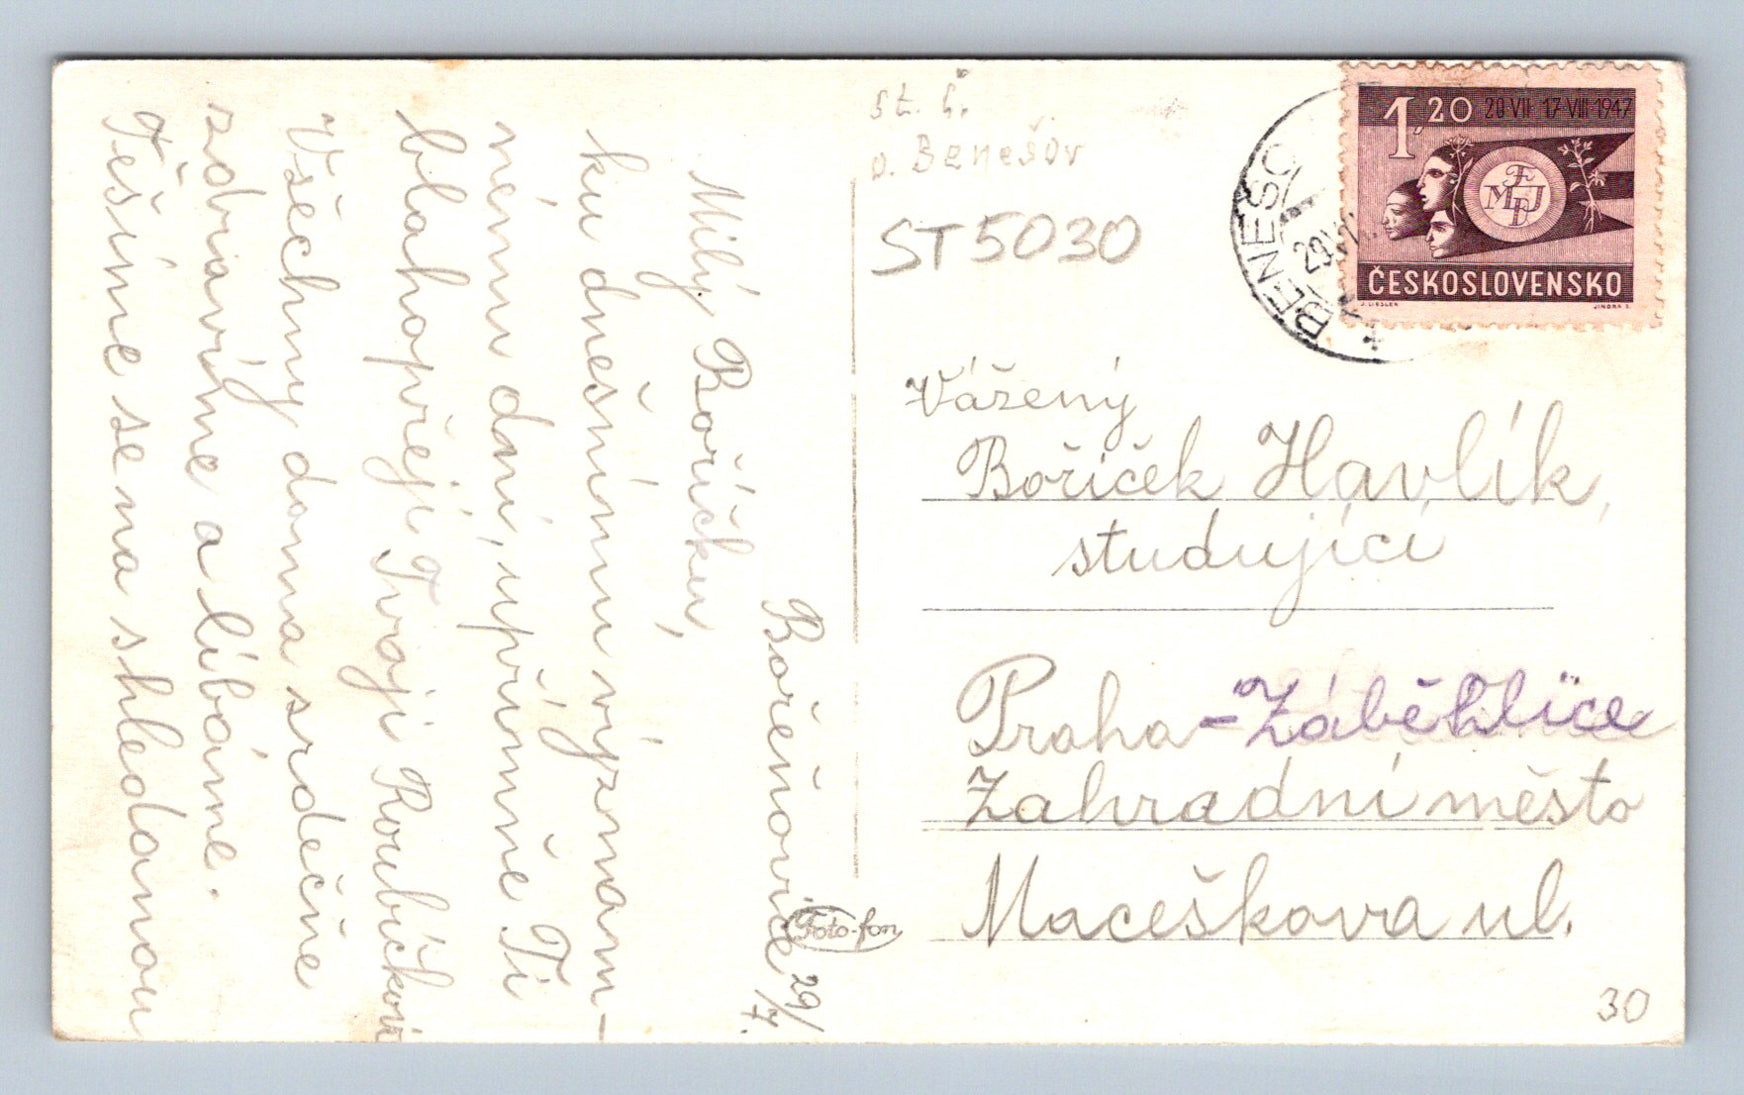 st. h.
o. Benešov
ST 5030
BENEŠO
29.VI
1,20 20·VII 17·VIII·1947
FMJD
ČESKOSLOVENSKO
J. LIESLER
JINDRA S.
Bořeňovice 29/7.
Milý Boříčku,
ku dnešnímu význam-
nému dni, upřímně Ti
blahopřejí Tvoji Roubíčkovi
Všechny doma srdečně
zdravíme a líbáme.
Těšíme se na shledanou
Foto-fon
Vážený
Bořiček Havlík,
studující
Praha-Záběhlice
Zahradní město
Maceškova ul.
30